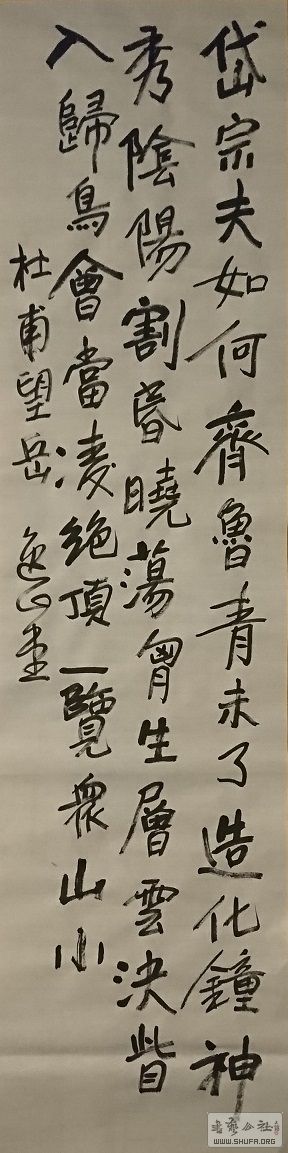 岱宗夫如何齊魯青未了造化鐘神
秀陰陽割昏曉蕩胷生層雲決眥
入歸鳥會當凌絕頂一覽衆山小
杜甫望岳
WWW.SHUFA.ORG